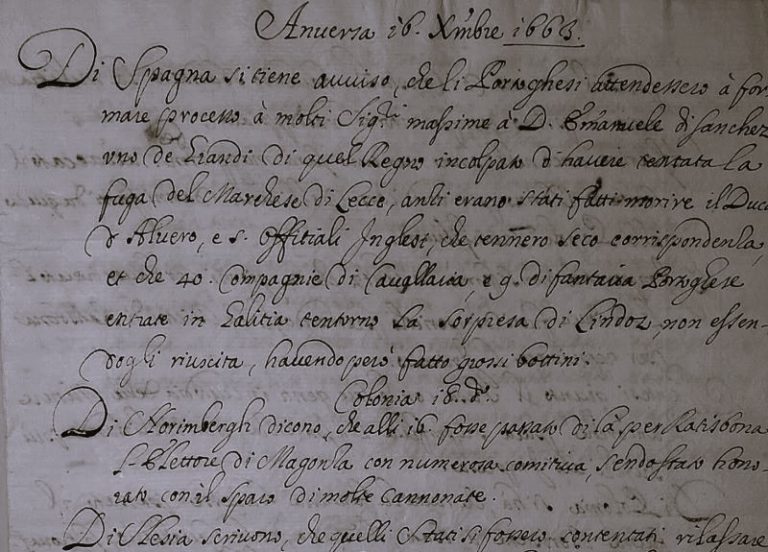 Anversa 16. Xmbre 1663.
Di Spagna si tiene avviso, che li Portoghesi attendessero à for,
mare processo à molti Sig.ri massime à D. Emanuele di Sanchez
uno de Grandi di quel Regno incolpato d'havere tentata la
fuga del Marchese di Lecce, anzi erano stati fatti morire il Duca
d'Alvero, e s. offitiali Inglesi, che tennero seco corrispondenza,
et che 40. Compagnie di Cavallaria, e 9. di fantaria Portoghese
entrate in Galitia tentorno la sorpresa di Lindoz, non essen-
dogli riuscita, havendo però fatto grossi bottini.
Colonia 18. d.o
Di Norimbergh dicono, che alli 16. fosse passato di là per Ratisbona
l'Elettore di Magonza con numerosa comitiva, sendo stato hono-
rato con il sparo di molte cannonate.
Di Slesia scrivono, che quelli Stati si fossero contentati rilassare